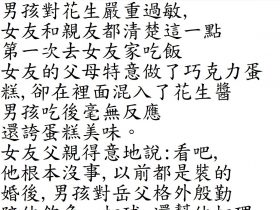 男孩對花生嚴重過敏,
女友和親友都清楚這一點
第一次去女友家吃飯
女友的父母特意做了巧克力蛋
糕,卻在裡面混入了花生醬
男孩吃後毫無反應
還誇蛋糕美味。
女友父親得意地說:看吧,
他根本沒事,以前都是裝的
婚後,男孩對岳父格外殷勤